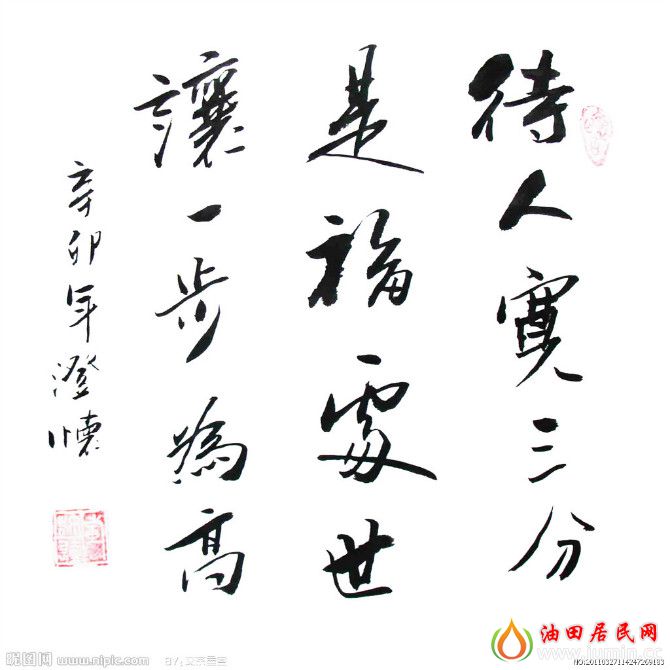 待人寬三分
是福處世
讓一步為高
辛卯年澄懷
昵图网 www.nipic.com
油田居民网
www.jumin.cc
NO:20110327114247269183